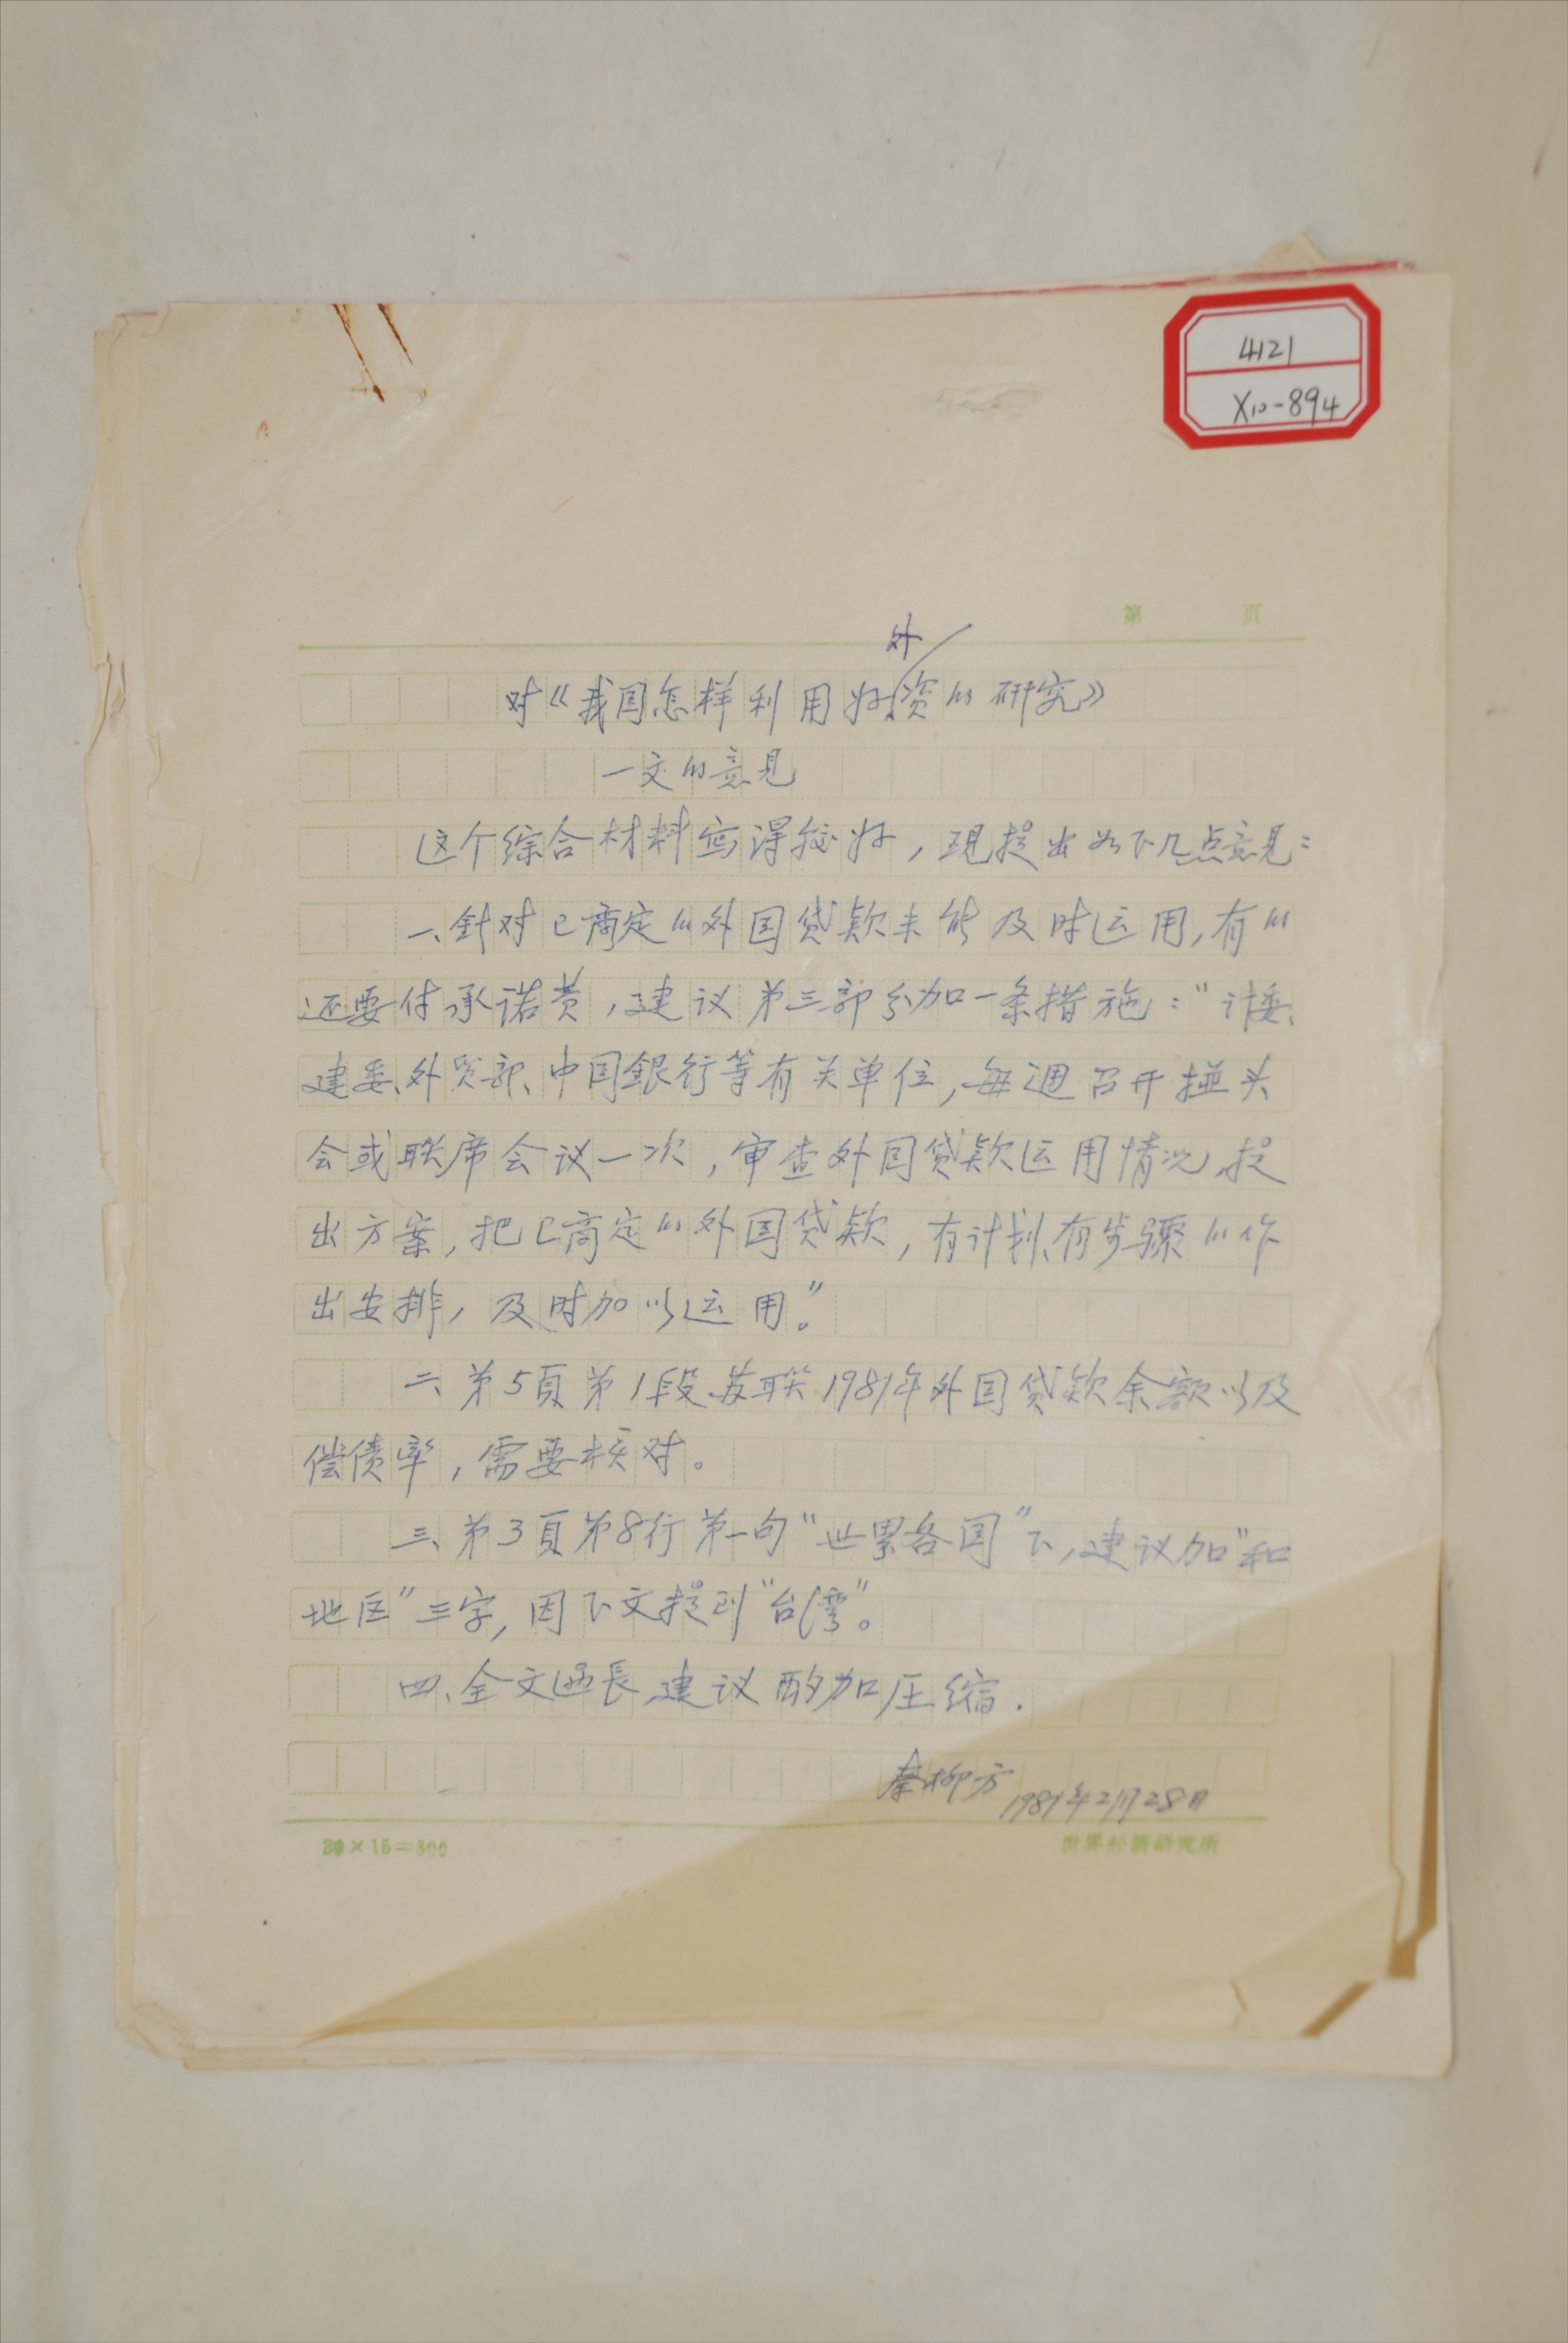 4121
X10-894
第 页
外
对《我国怎样利用好资的研究》
一文的意见
这个综合材料写得较好,现提出如下几点意见:
一、針对已商定的外国贷款未能及时运用,有的
还要付承诺费,建议第三部分加一条措施:“计委、
建委、外贸部、中国銀行等有关单位,每週召开碰头
会或联席会议一次,审查外国贷款运用情况,提
出方案,把已商定的外国贷款,有计划、有步骤的作
出安排,及时加以运用。”
二、第5頁第1段苏联1981年外国贷款余额以及
偿债率,需要核对。
三、第3頁第8行第一句“世界各国”下,建议加“和
地区”三字,因下文提到“台湾”。
四、全文过長,建议酌加压缩.
秦柳方
1981年2月28日
20×15=300
世界经济研究所